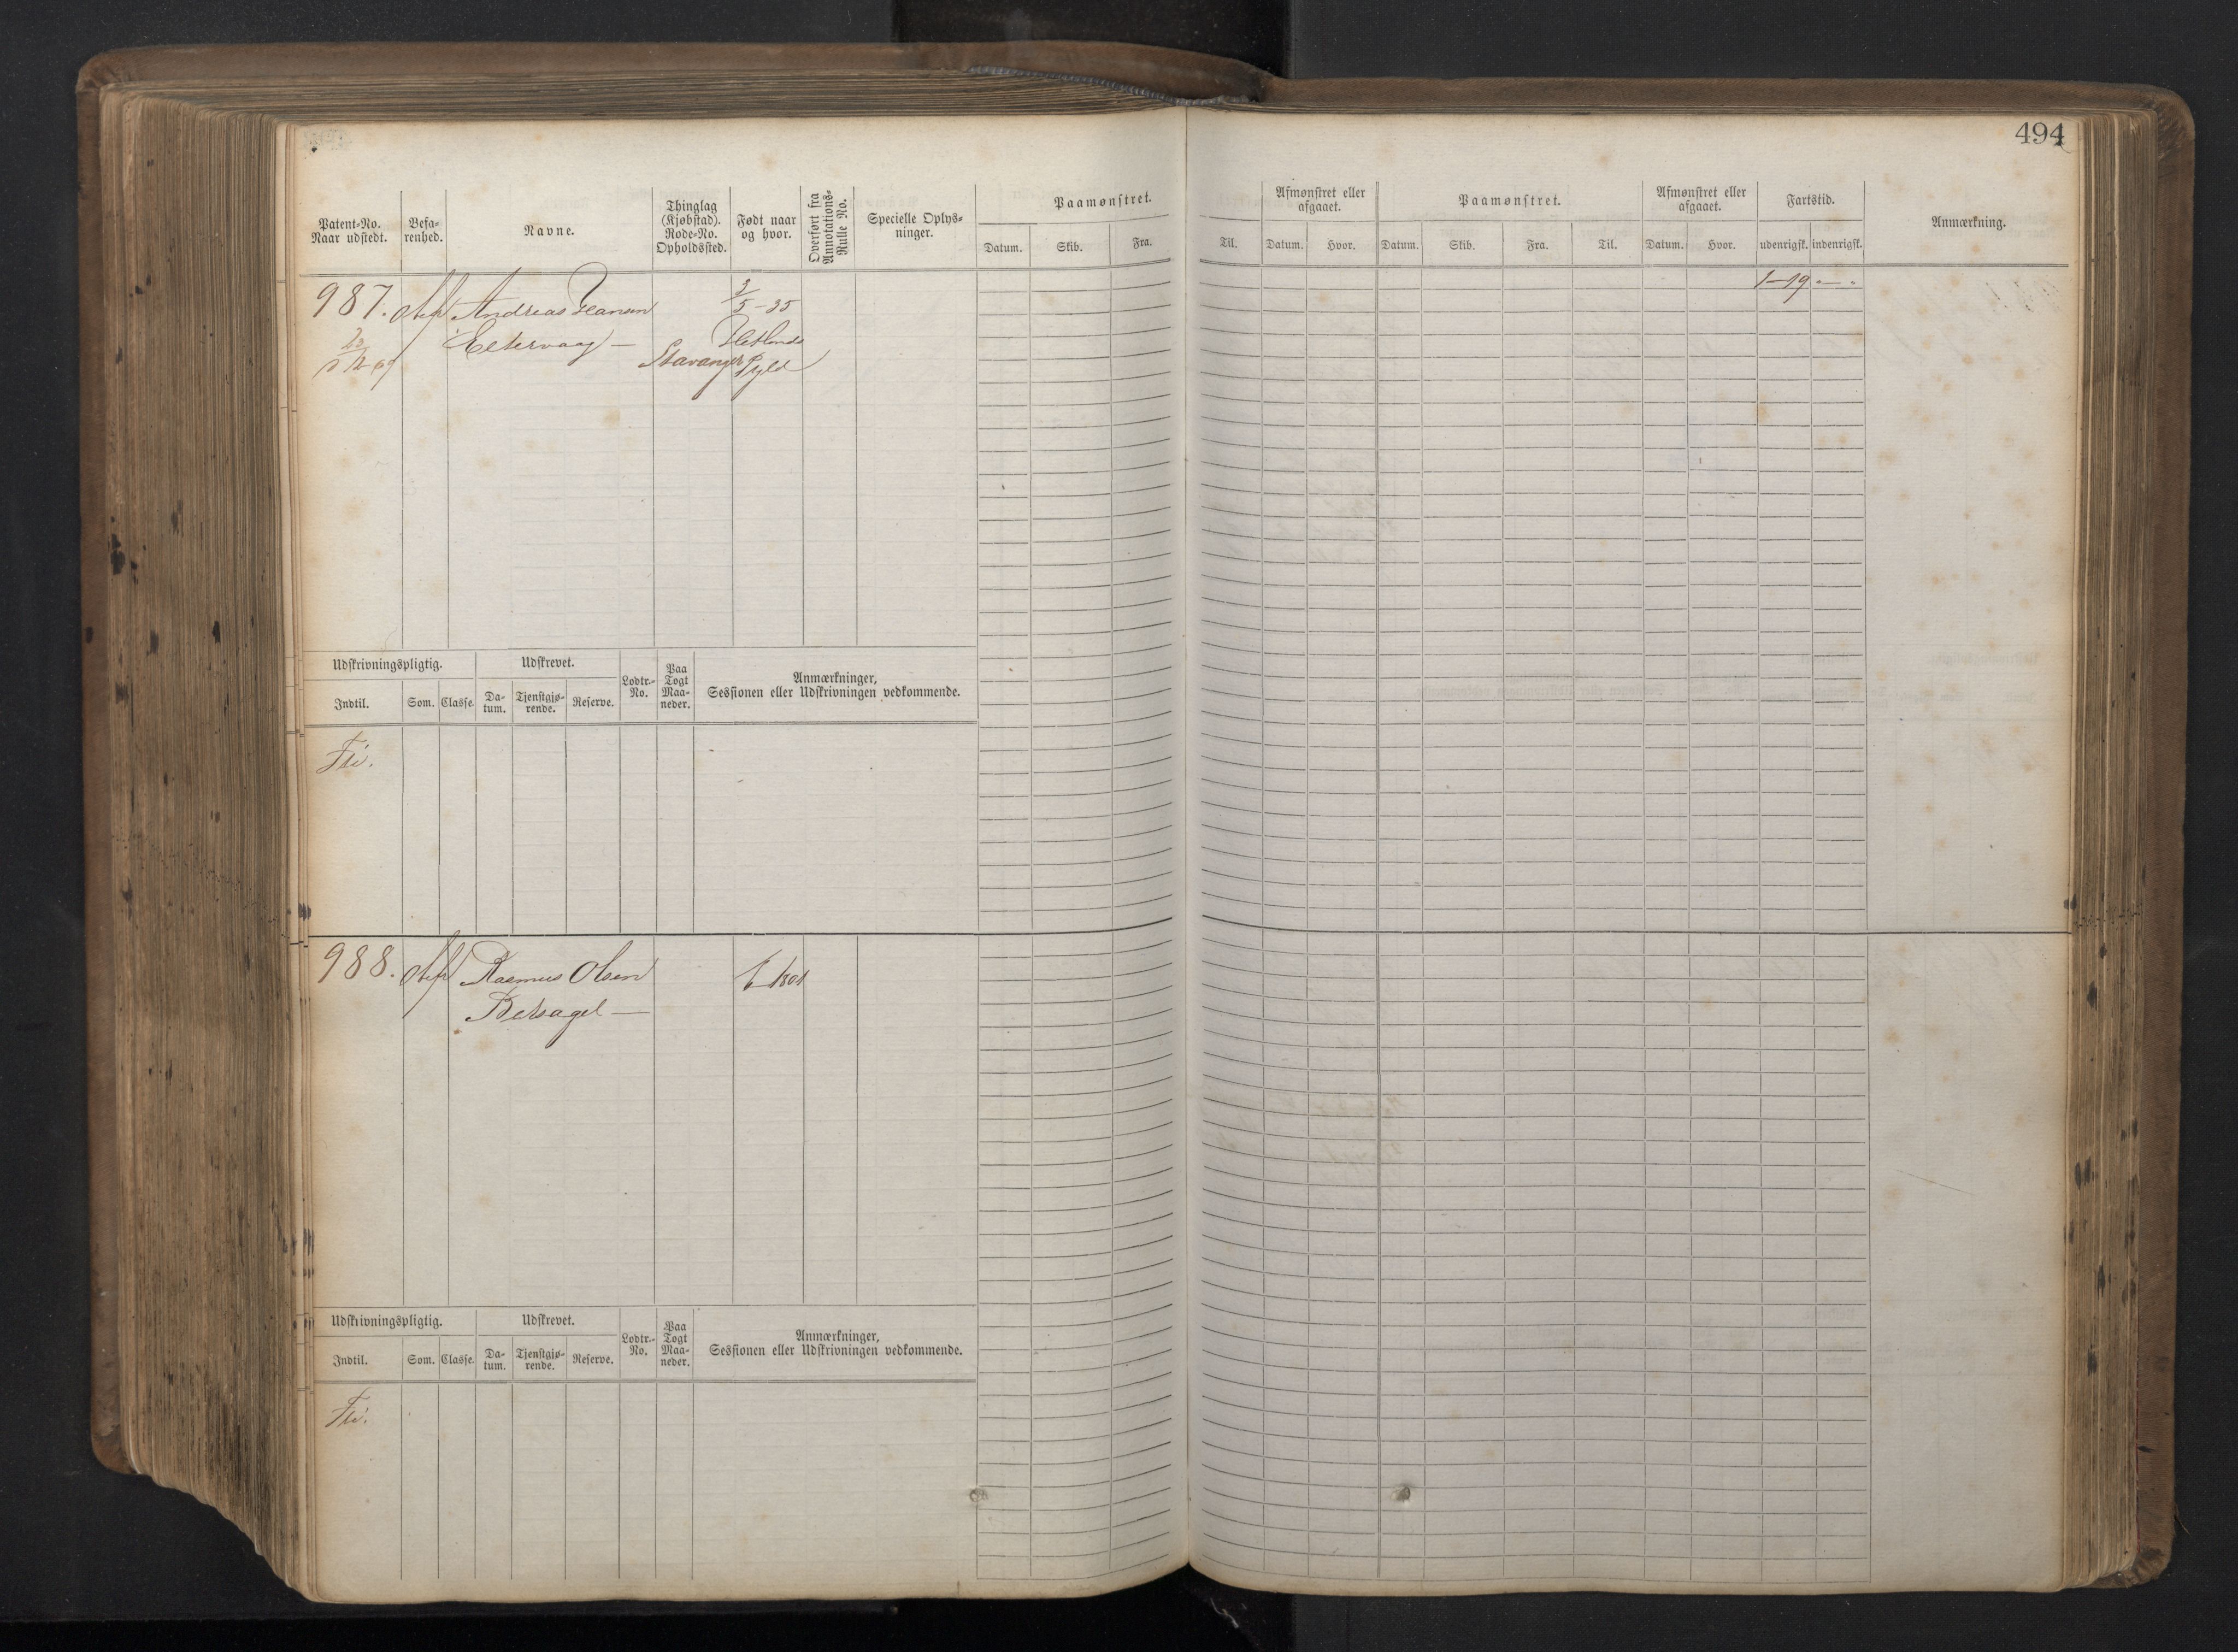 494
Patent-No.
Naar udstedt.
Befa-
renhed.
Navne.
Thinglag
(Kjøbstad).
Rode-No.
Opholdssted.
Født naar
og hvor.
Overført fra
Annotations-
Rulle No.
Specielle Oplys-
ninger.
Paamønstret.
Datum. Skib. Fra.
Til.
Afmønstret eller
afgaaet.
Datum. Hvor.
Paamønstret.
Datum. Skib. Fra. Til.
Afmønstret eller
afgaaet.
Datum. Hvor.
Fartstid.
udenrigsk. indenrigsk.
Anmærkning.
987. Andreas Hansen
3/5-25
1-19
Stavanger
Udskrivningspligtig.
Indtil. Som. Classe.
Udskrevet.
Da-
tum.
Tjenstgjø-
rende.
Reserve.
Lodtr.-
No.
Paa
Togt
Maa-
neder.
Anmærkninger,
Sessionen eller Udskrivningen vedkommende.
Fri.
988. Rasmus Olsen
1801
Botsagel
Udskrivningspligtig.
Indtil. Som. Classe.
Udskrevet.
Da-
tum.
Tjenstgjø-
rende.
Reserve.
Lodtr.-
No.
Paa
Togt
Maa-
neder.
Anmærkninger,
Sessionen eller Udskrivningen vedkommende.
Fri.